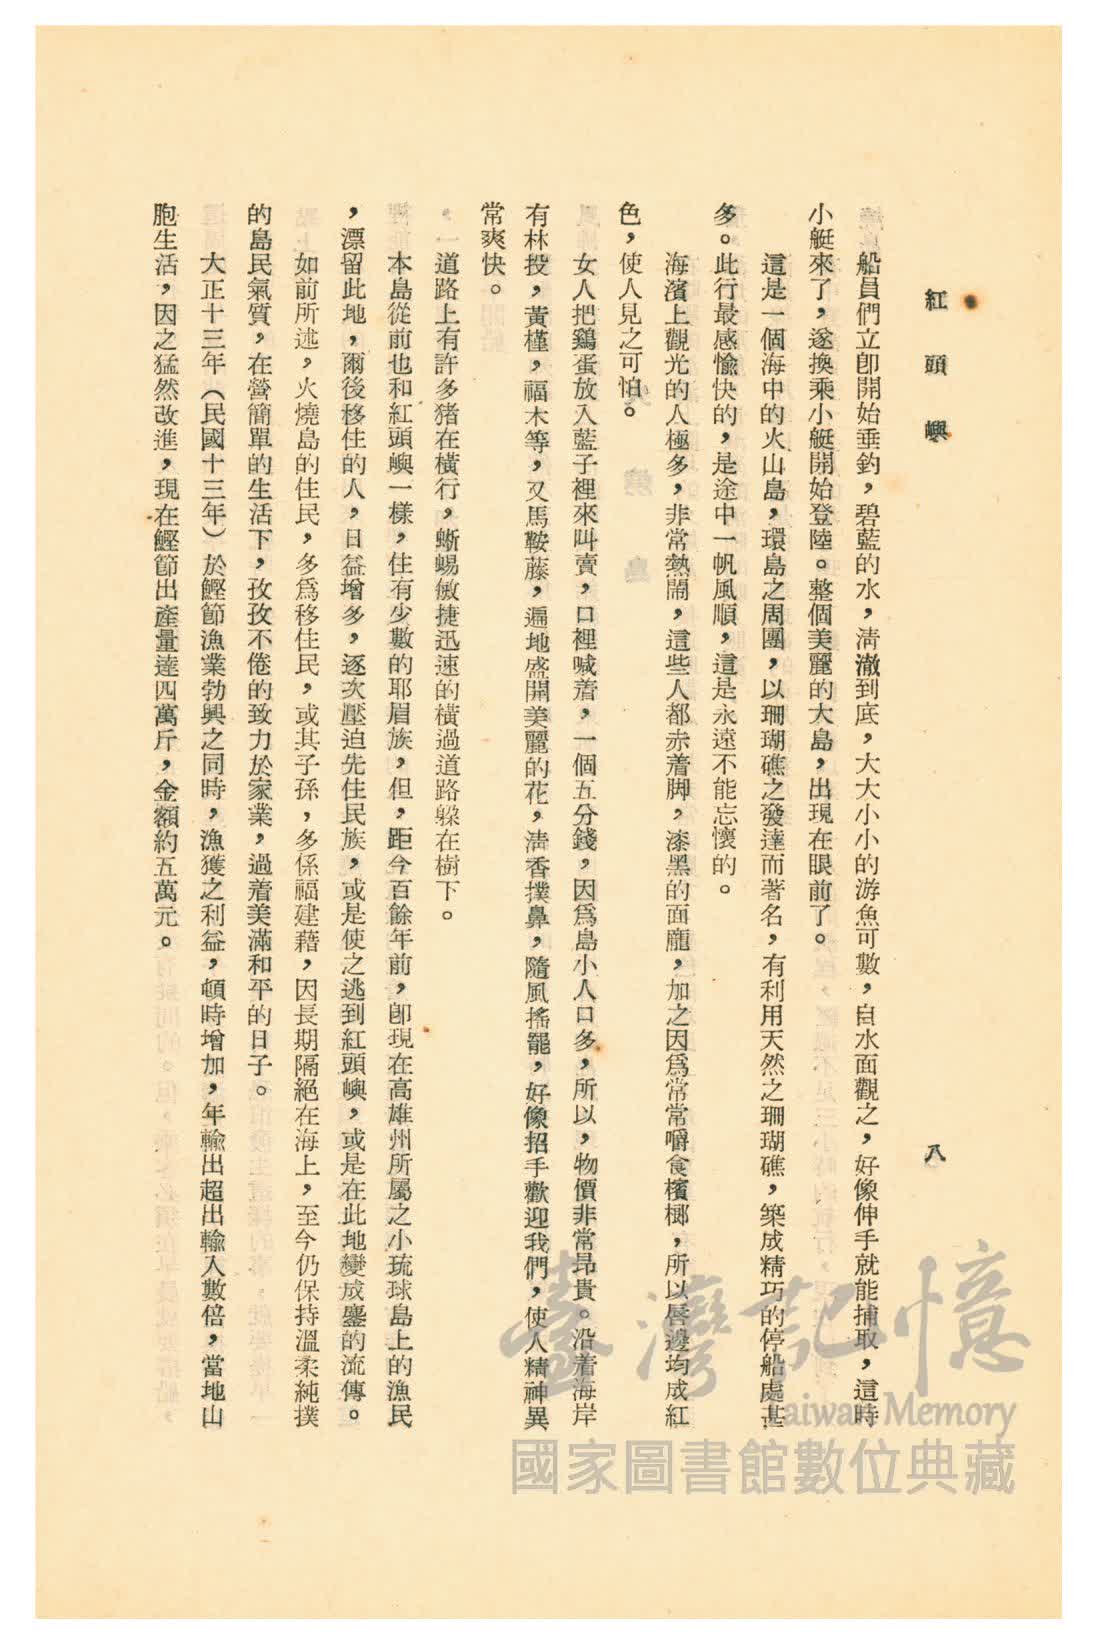 紅頭嶼
八
船員們立卽開始垂釣，碧藍的水，淸澈到底，大大小小的游魚可數，自水面觀之，好像伸手就能捕取，這時
小艇來了，遂換乘小艇開始登陸。整個美麗的大島，出現在眼前了。
這是一個海中的火山島，環島之周圍，以珊瑚礁之發達而著名，有利用天然之珊瑚礁，築成精巧的停船處甚
多。此行最感愉快的，是途中一帆風順，這是永遠不能忘懷的。
海濱上觀光的人極多，非常熱鬧，這些人都赤着脚，漆黑的面龐，加之因爲常常嚼食檳榔，所以唇邊均成紅
色，使人見之可怕。
女人把鷄蛋放入藍子裡來叫賣，口裡喊着，一個五分錢，因爲島小人口多，所以，物價非常昂貴。沿着海岸
有林投，黃槿，福木等，又馬鞍藤，遍地盛開美麗的花，淸香撲鼻，隨風搖擺，好像招手歡迎我們，使人精神異
常爽快。
，一道路上有許多猪在橫行，蜥蜴敏捷迅速的橫過道路躱在樹下。
本島從前也和紅頭嶼一樣，住有少數的耶眉族，但，距今百餘年前，卽現在高雄州所屬之小琉球島上的漁民
，漂留此地，爾後移住的人，日益增多，逐次壓迫先住民族，或是使之逃到紅頭嶼，或是在此地變成鏖的流傳。
如前所述，火燒島的住民，多爲移住民，或其子孫，多係福建藉，因長期隔絕在海上，至今仍保持溫柔純撲
的島民氣質，在營簡單的生活下，孜孜不倦的致力於家業，過着美滿和平的日子。
大正十三年（民國十三年）於鰹節漁業勃興之同時，漁獲之利益，頓時增加，年輸出超出輸入數倍，當地山
胞生活，因之猛然改進，現在鰹節出產量達四萬斤，金額約五萬元。
臺灣記憶
Taiwan Memory
國家圖書館數位典藏